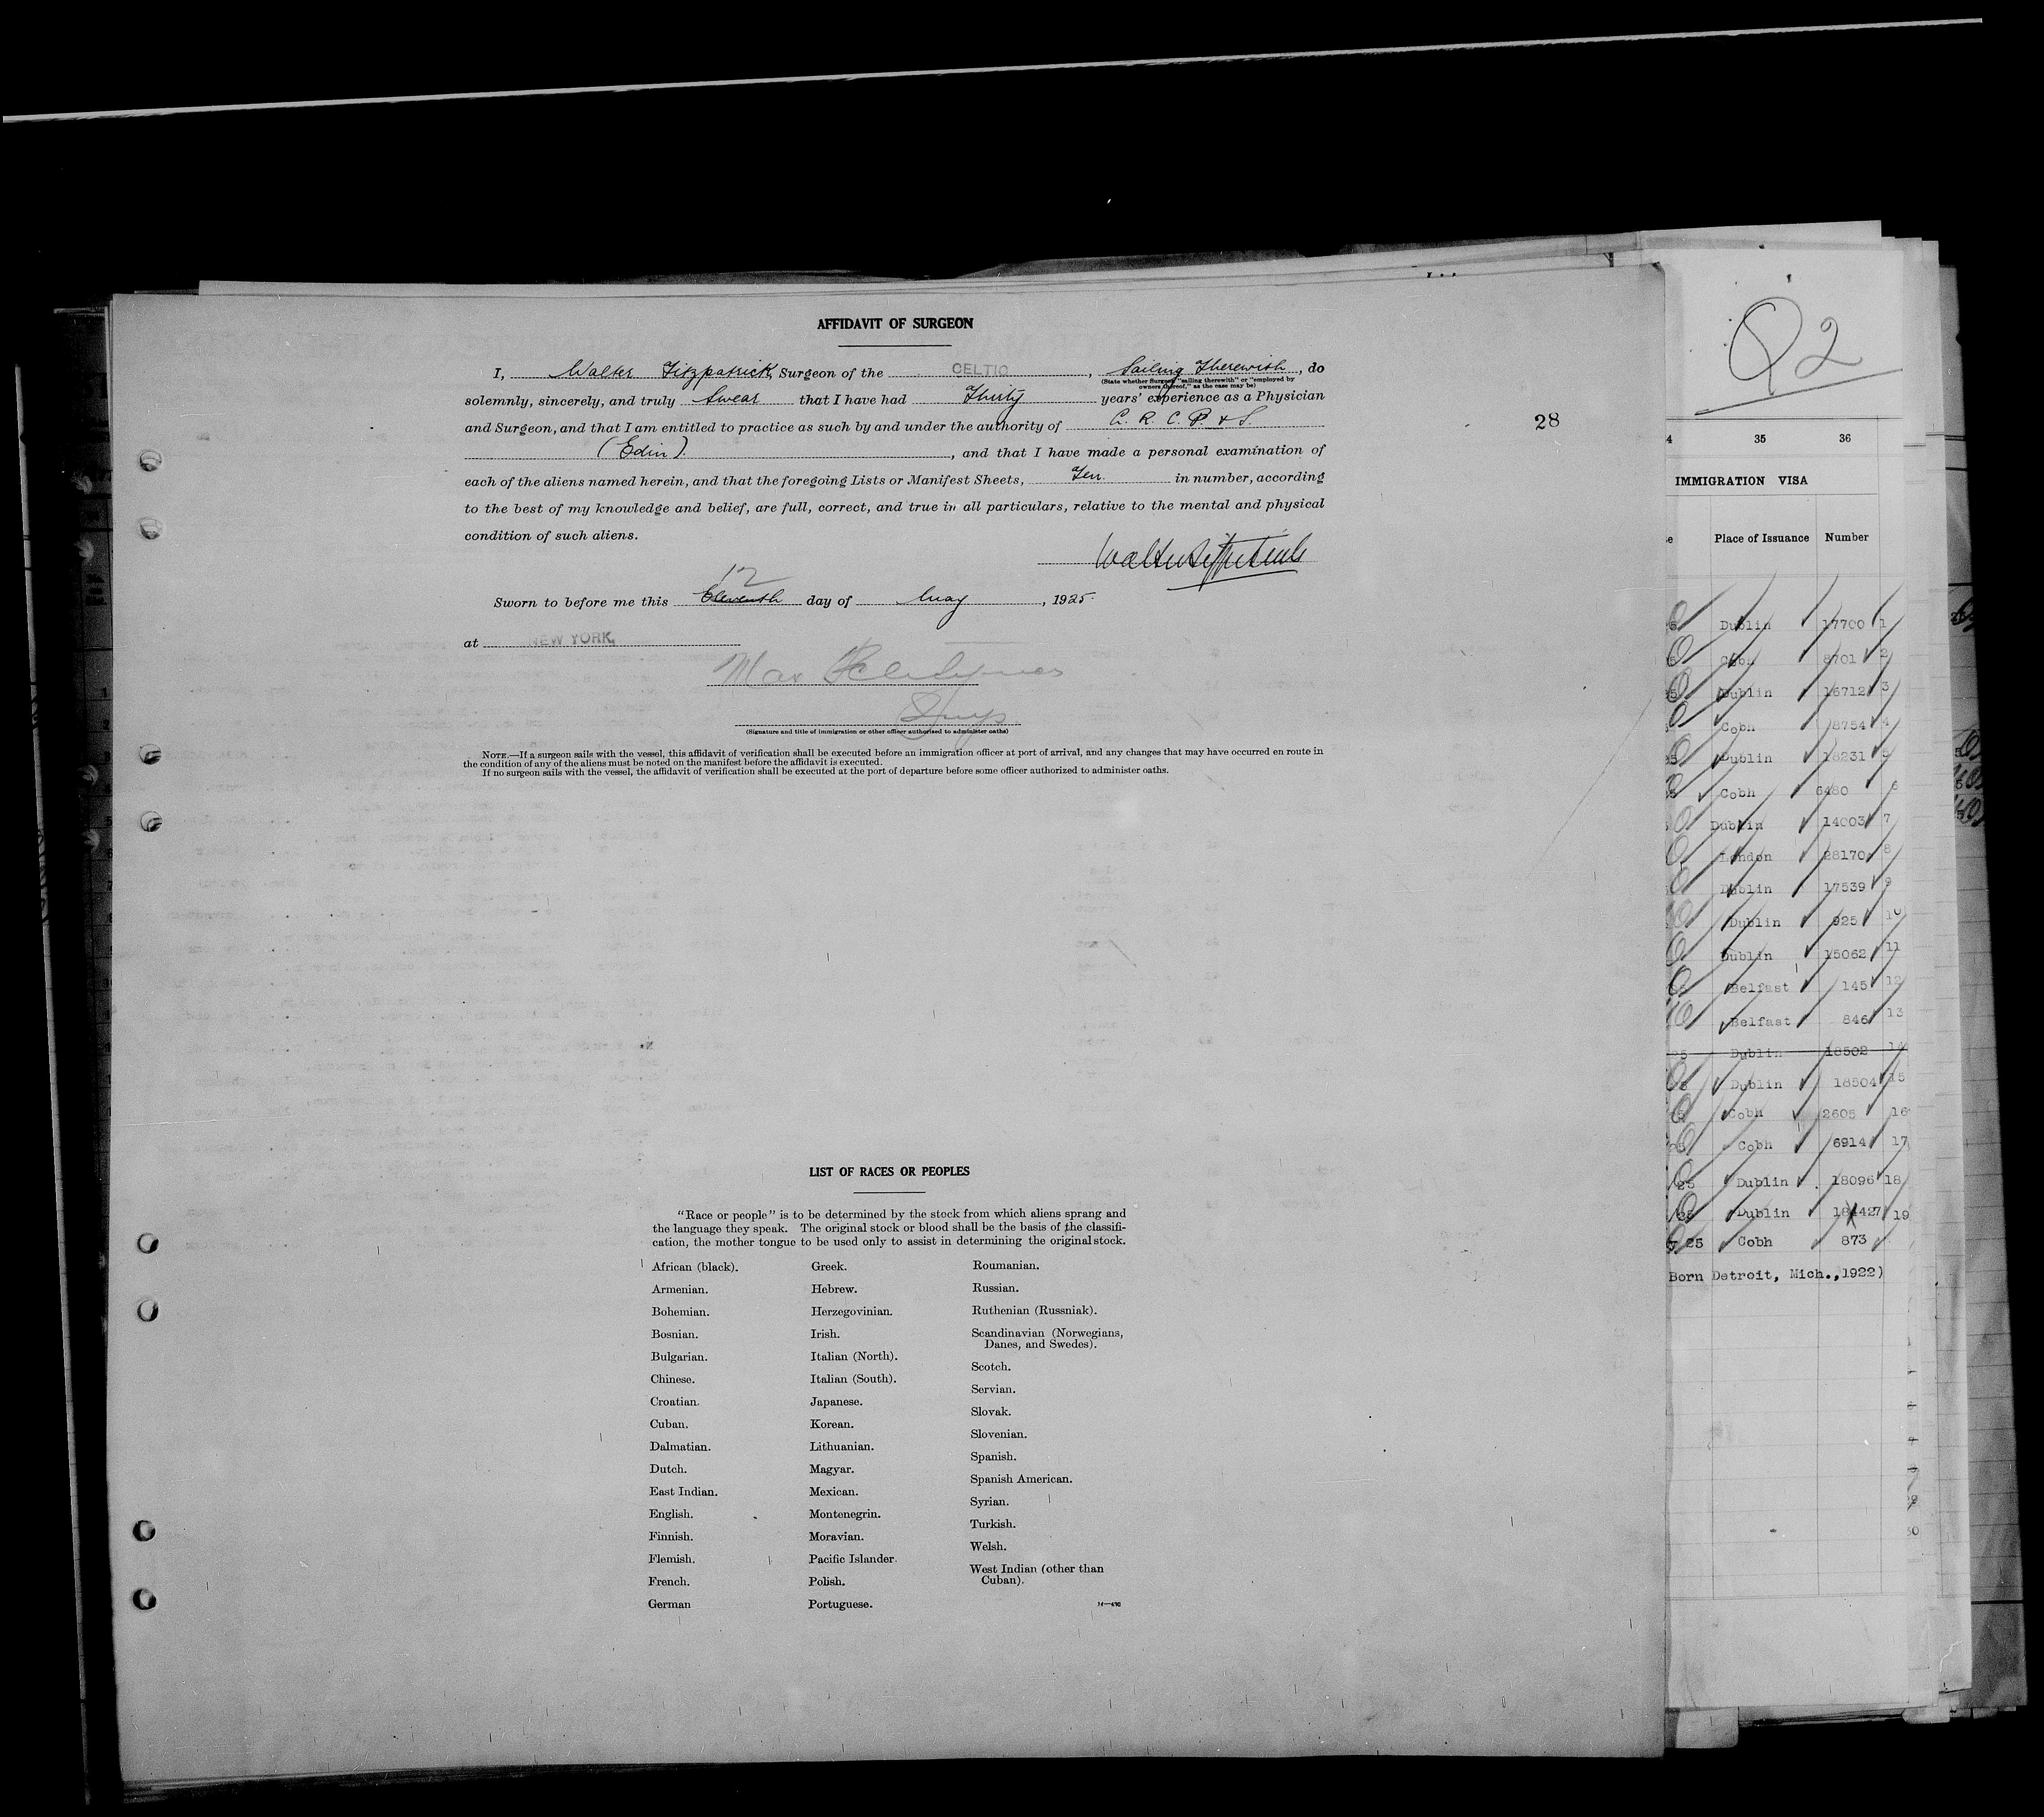 AFFIDAVIT OF SURGEON
I, Walter Fitzpatrick, Surgeon of the CELTIC, Sailing Therewith, do
(State whether Surgeon "sailing therewith" or "employed by
owners thereof," as the case may be)
solemnly, sincerely, and truly swear that I have had Thirty years' experience as a Physician
and Surgeon, and that I am entitled to practice as such by and under the authority of L. R. C. P. & S.
28
(Edin), and that I have made a personal examination of
each of the aliens named herein, and that the foregoing Lists or Manifest Sheets, Ten in number, according
to the best of my knowledge and belief, are full, correct, and true in all particulars, relative to the mental and physical
condition of such aliens.
Walter Fitzpatrick
12
Sworn to before me this Eleventh day of May, 1925.
at NEW YORK.
Max
(Signature and title of immigration or other officer authorized to administer oaths)
NOTE.—If a surgeon sails with the vessel, this affidavit of verification shall be executed before an immigration officer at port of arrival, and any changes that may have occurred en route in
the condition of any of the aliens must be noted on the manifest before the affidavit is executed.
If no surgeon sails with the vessel, the affidavit of verification shall be executed at the port of departure before some officer authorized to administer oaths.
LIST OF RACES OR PEOPLES
"Race or people" is to be determined by the stock from which aliens sprang and
the language they speak. The original stock or blood shall be the basis of the classifi-
cation, the mother tongue to be used only to assist in determining the original stock.
African (black).
Armenian.
Bohemian.
Bosnian.
Bulgarian.
Chinese.
Croatian.
Cuban.
Dalmatian.
Dutch.
East Indian.
English.
Finnish.
Flemish.
French.
German
Greek.
Hebrew.
Herzegovinian.
Irish.
Italian (North).
Italian (South).
Japanese.
Korean.
Lithuanian.
Magyar.
Mexican.
Montenegrin.
Moravian.
Pacific Islander.
Polish.
Portuguese.
Roumanian.
Russian.
Ruthenian (Russniak).
Scandinavian (Norwegians,
Danes, and Swedes).
Scotch.
Servian.
Slovak.
Slovenian.
Spanish.
Spanish American.
Syrian.
Turkish.
Welsh.
West Indian (other than
Cuban).
4 35 36
IMMIGRATION VISA
Place of Issuance Number
Dublin 17700 1
Cobh 8701 2
Dublin 16712 3
Cobh 8754 4
Dublin 18231 5
Cobh 6480 6
Dublin 14003 7
London 28170 8
Dublin 17539 9
Dublin 925 10
Dublin 15062 11
Belfast 145 12
Belfast 846 13
Dublin 18502 14
Dublin 18504 15
Cobh 2605 16
Cobh 6914 17
25 Dublin 18096 18
25 Dublin 18427 19
25 Cobh 873
Born Detroit, Mich., 1922)
30